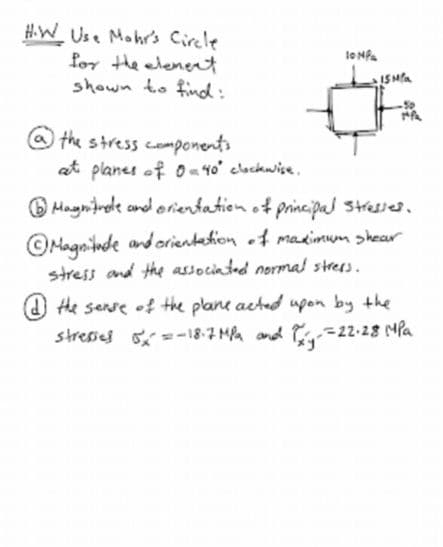 H.W Use Mohr's Circle
for the element
shown to find:
10 MPa
15 MPa
50
MPa
(a) the stress components
at planes of θ = 40° clockwise.
(b) Magnitude and orientation of principal stresses.
(c) Magnitude and orientation of maximum shear
stress and the associated normal stress.
(d) the sense of the plane acted upon by the
stresses σx' = -18.7 MPa and τx'y' = 22.28 MPa